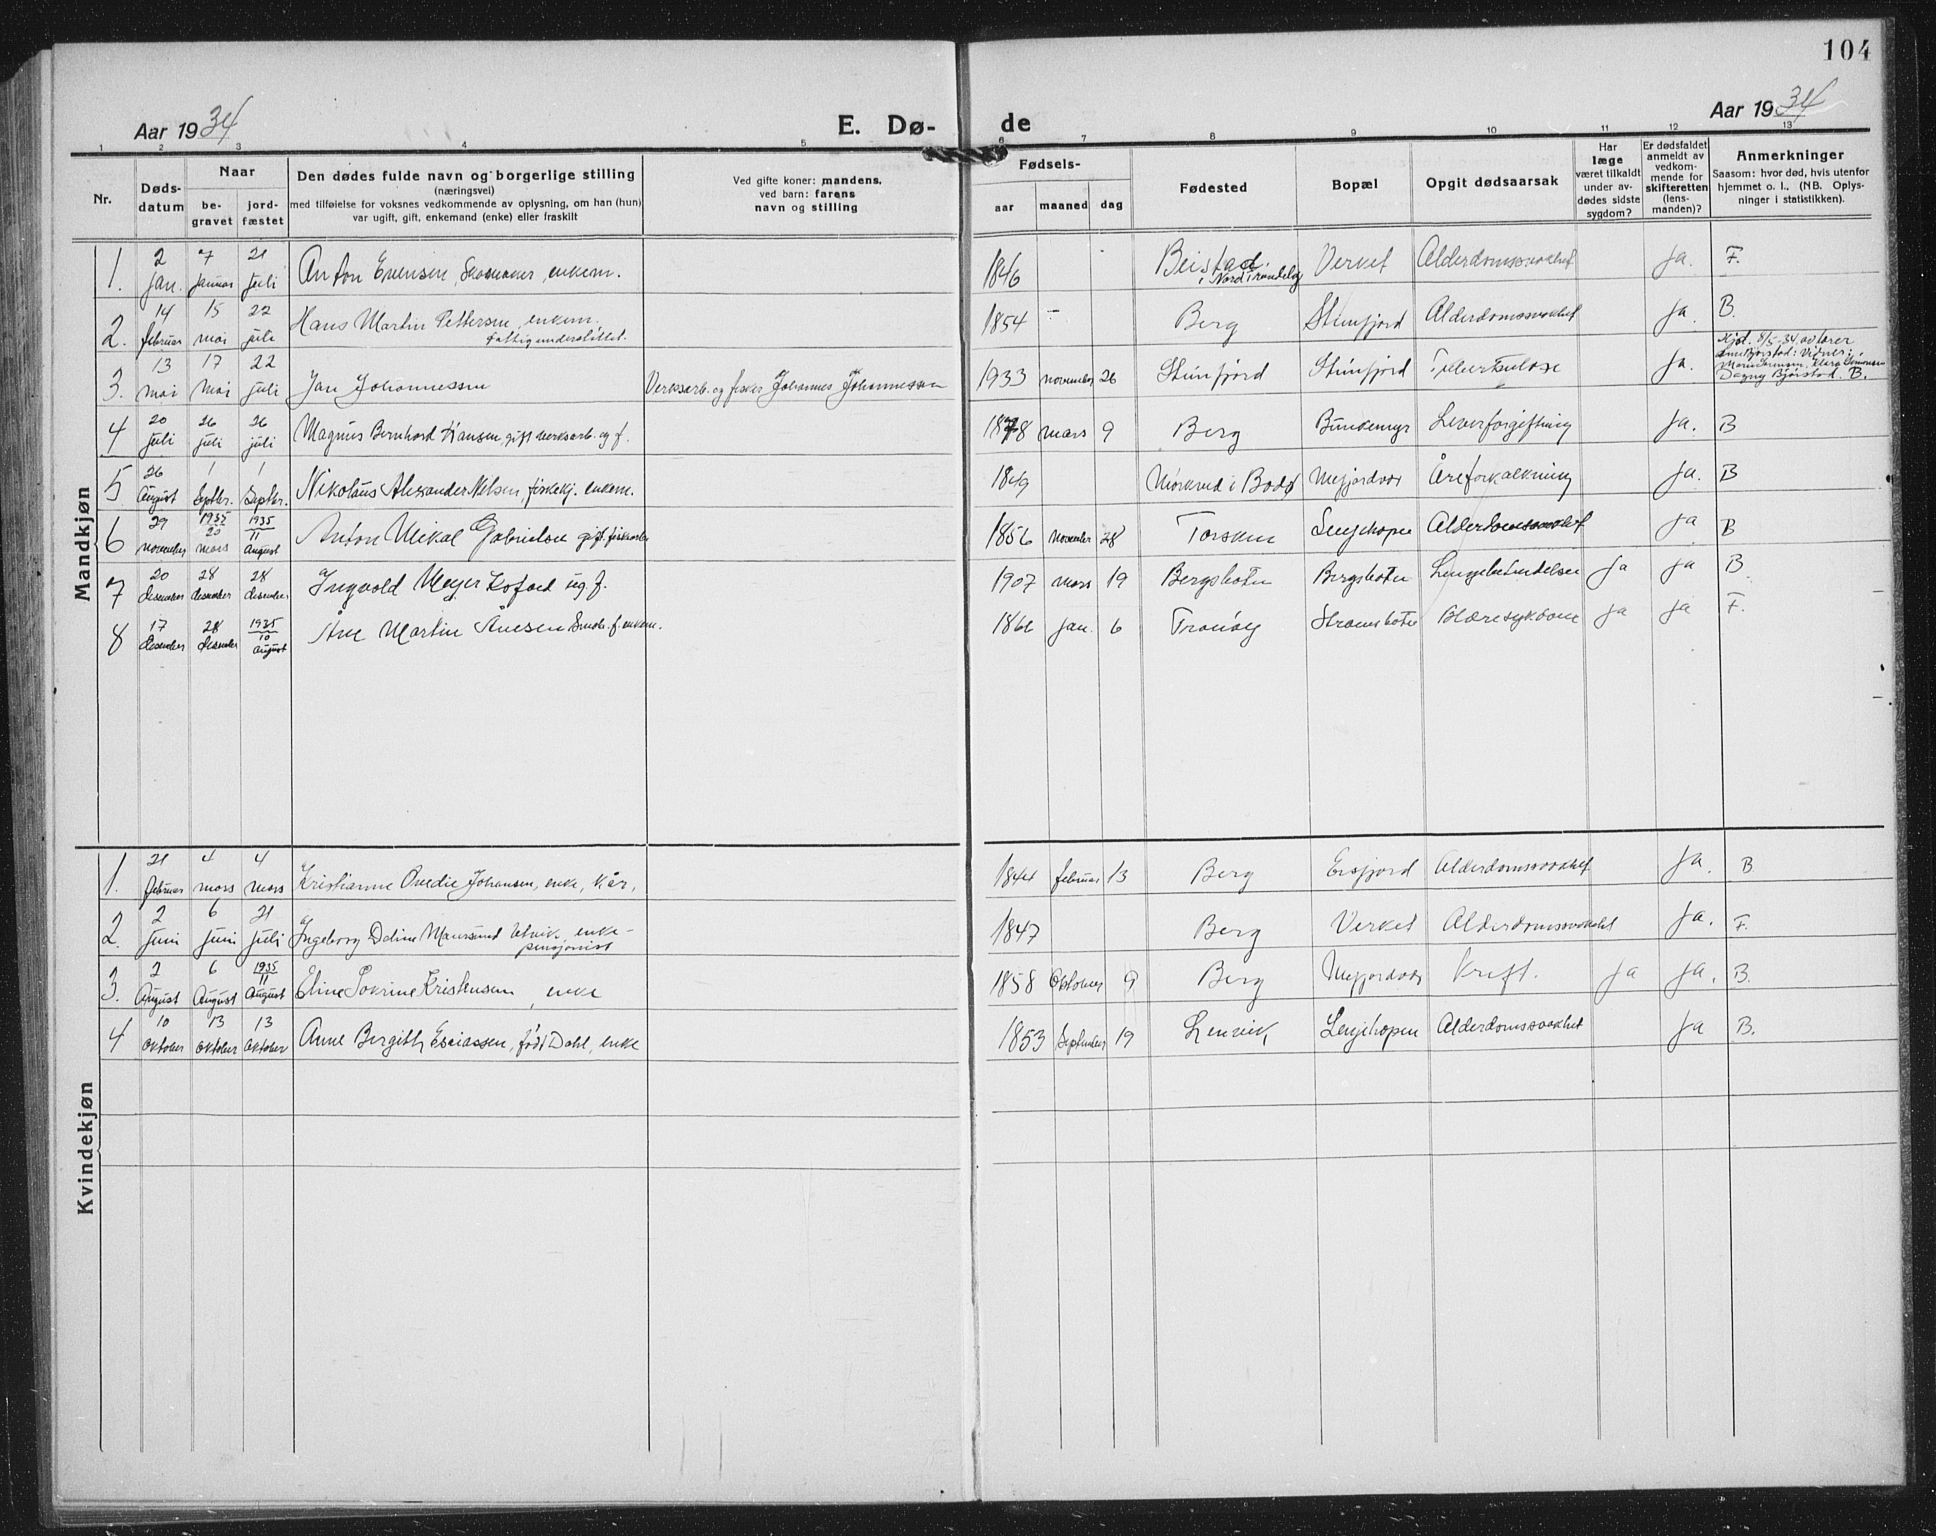 104
Aar 1934
E. Dø-
de
Aar 1934
1 2 3 4 5 6 7 8 9 10 11 12 13
Nr.
Døds-
datum
Naar
be-
gravet
jord-
fæstet
Den dødes fulde navn og borgerlige stilling
(næringsvei)
med tilføielse for voksnes vedkommende av oplysning, om han (hun)
var ugift, gift, enkemand (enke) eller fraskilt
Ved gifte koner: mandens,
ved barn: farens
navn og stilling
Fødsels-
aar
maaned
dag
Fødested
Bopæl
Opgit dødsaarsak
Har
læge
været tilkaldt
under av-
dødes sidste
sygdom?
Er dødsfaldet
anmeldt av
vedkom-
mende for
skifteretten
(lens-
manden)?
Anmerkninger
Saasom: hvor død, hvis utenfor
hjemmet o. l., (NB. Oplys-
ninger i statistikken).
Mandkjøn
1. 2 Jan. 7 Januar 21 Juli Anton Evensen, enkem. 1846 Beistad i Nord Trøndelag Verket Alderdomssvakhet Ja. F.
2. 14 februar 15 mai 22 juli Hans Martin Pettersen, enkem. fattigunderstøttet. 1854 - Berg Steinfjord Alderdomssvakhet Ja. B.
3. 13 mai 17 Mai 22 juli Jan Johannessen Verksarb. og fisker Johannes Johannessen 1933 november 26 Steinfjord Steinfjord Tuberkulose Ja. Dagny Bjørstad. B.
4 20 juli 26 juli 26 juli Magnus Bernhard Hansen, gift verksarb. og f. 1878 mars 9 Berg Bunkemyr Leverforgiftning Ja. B
5 26 August 1 Septbr. 1 Septbr. Nikolaus Alexander Nilsen, fiskekj. enkem. 1849 Mørkved i Bodø Mefjordvær Åreforkalkning Ja. B
6 29 november 1935 20 mars 1935 11 August Anton Mikal Gabrielsen gift. 1856 november 28 Torsken Lenjehopen Alderdomssvakhet Ja B
7 20 desember 28 desember 28 desember Ingvald Meyer Kofoed ug f. 1907 mars 19 Bergsbotn Bergsbotn Lungebetendelse Ja Ja B
8 17 desember 28 desember 1935 10 August Martin f. enkem. 1866 Jan. 6 Tranøy Straumsbotn Blæresykdom Ja Ja F.
Kvindekjøn
1. 21 februar 4 mars 4 mars Kristianne Ovedie Johansen, enke, kår, 1844 februar 13 Berg Ersfjord Alderdomssvakhet Ja. B
2. 2 Juni 6 Juni 21 Juli Ingeborg Deline Utvik, enke - pensjonist 1847 Berg Verket Alderdomssvakhet Ja. F.
3. 2 August 6 August 1935 11 August Eline Kristensen, enke 1858 Oktober 9 Berg Mefjordvær Kreft. Ja Ja. B.
4 10 oktober 13 oktober 13 oktober Anne Bergith Esaiassen, født Dahl, enke 1853 September 19 Lenvik Lenjehopen Alderdomssvakhet Ja B.